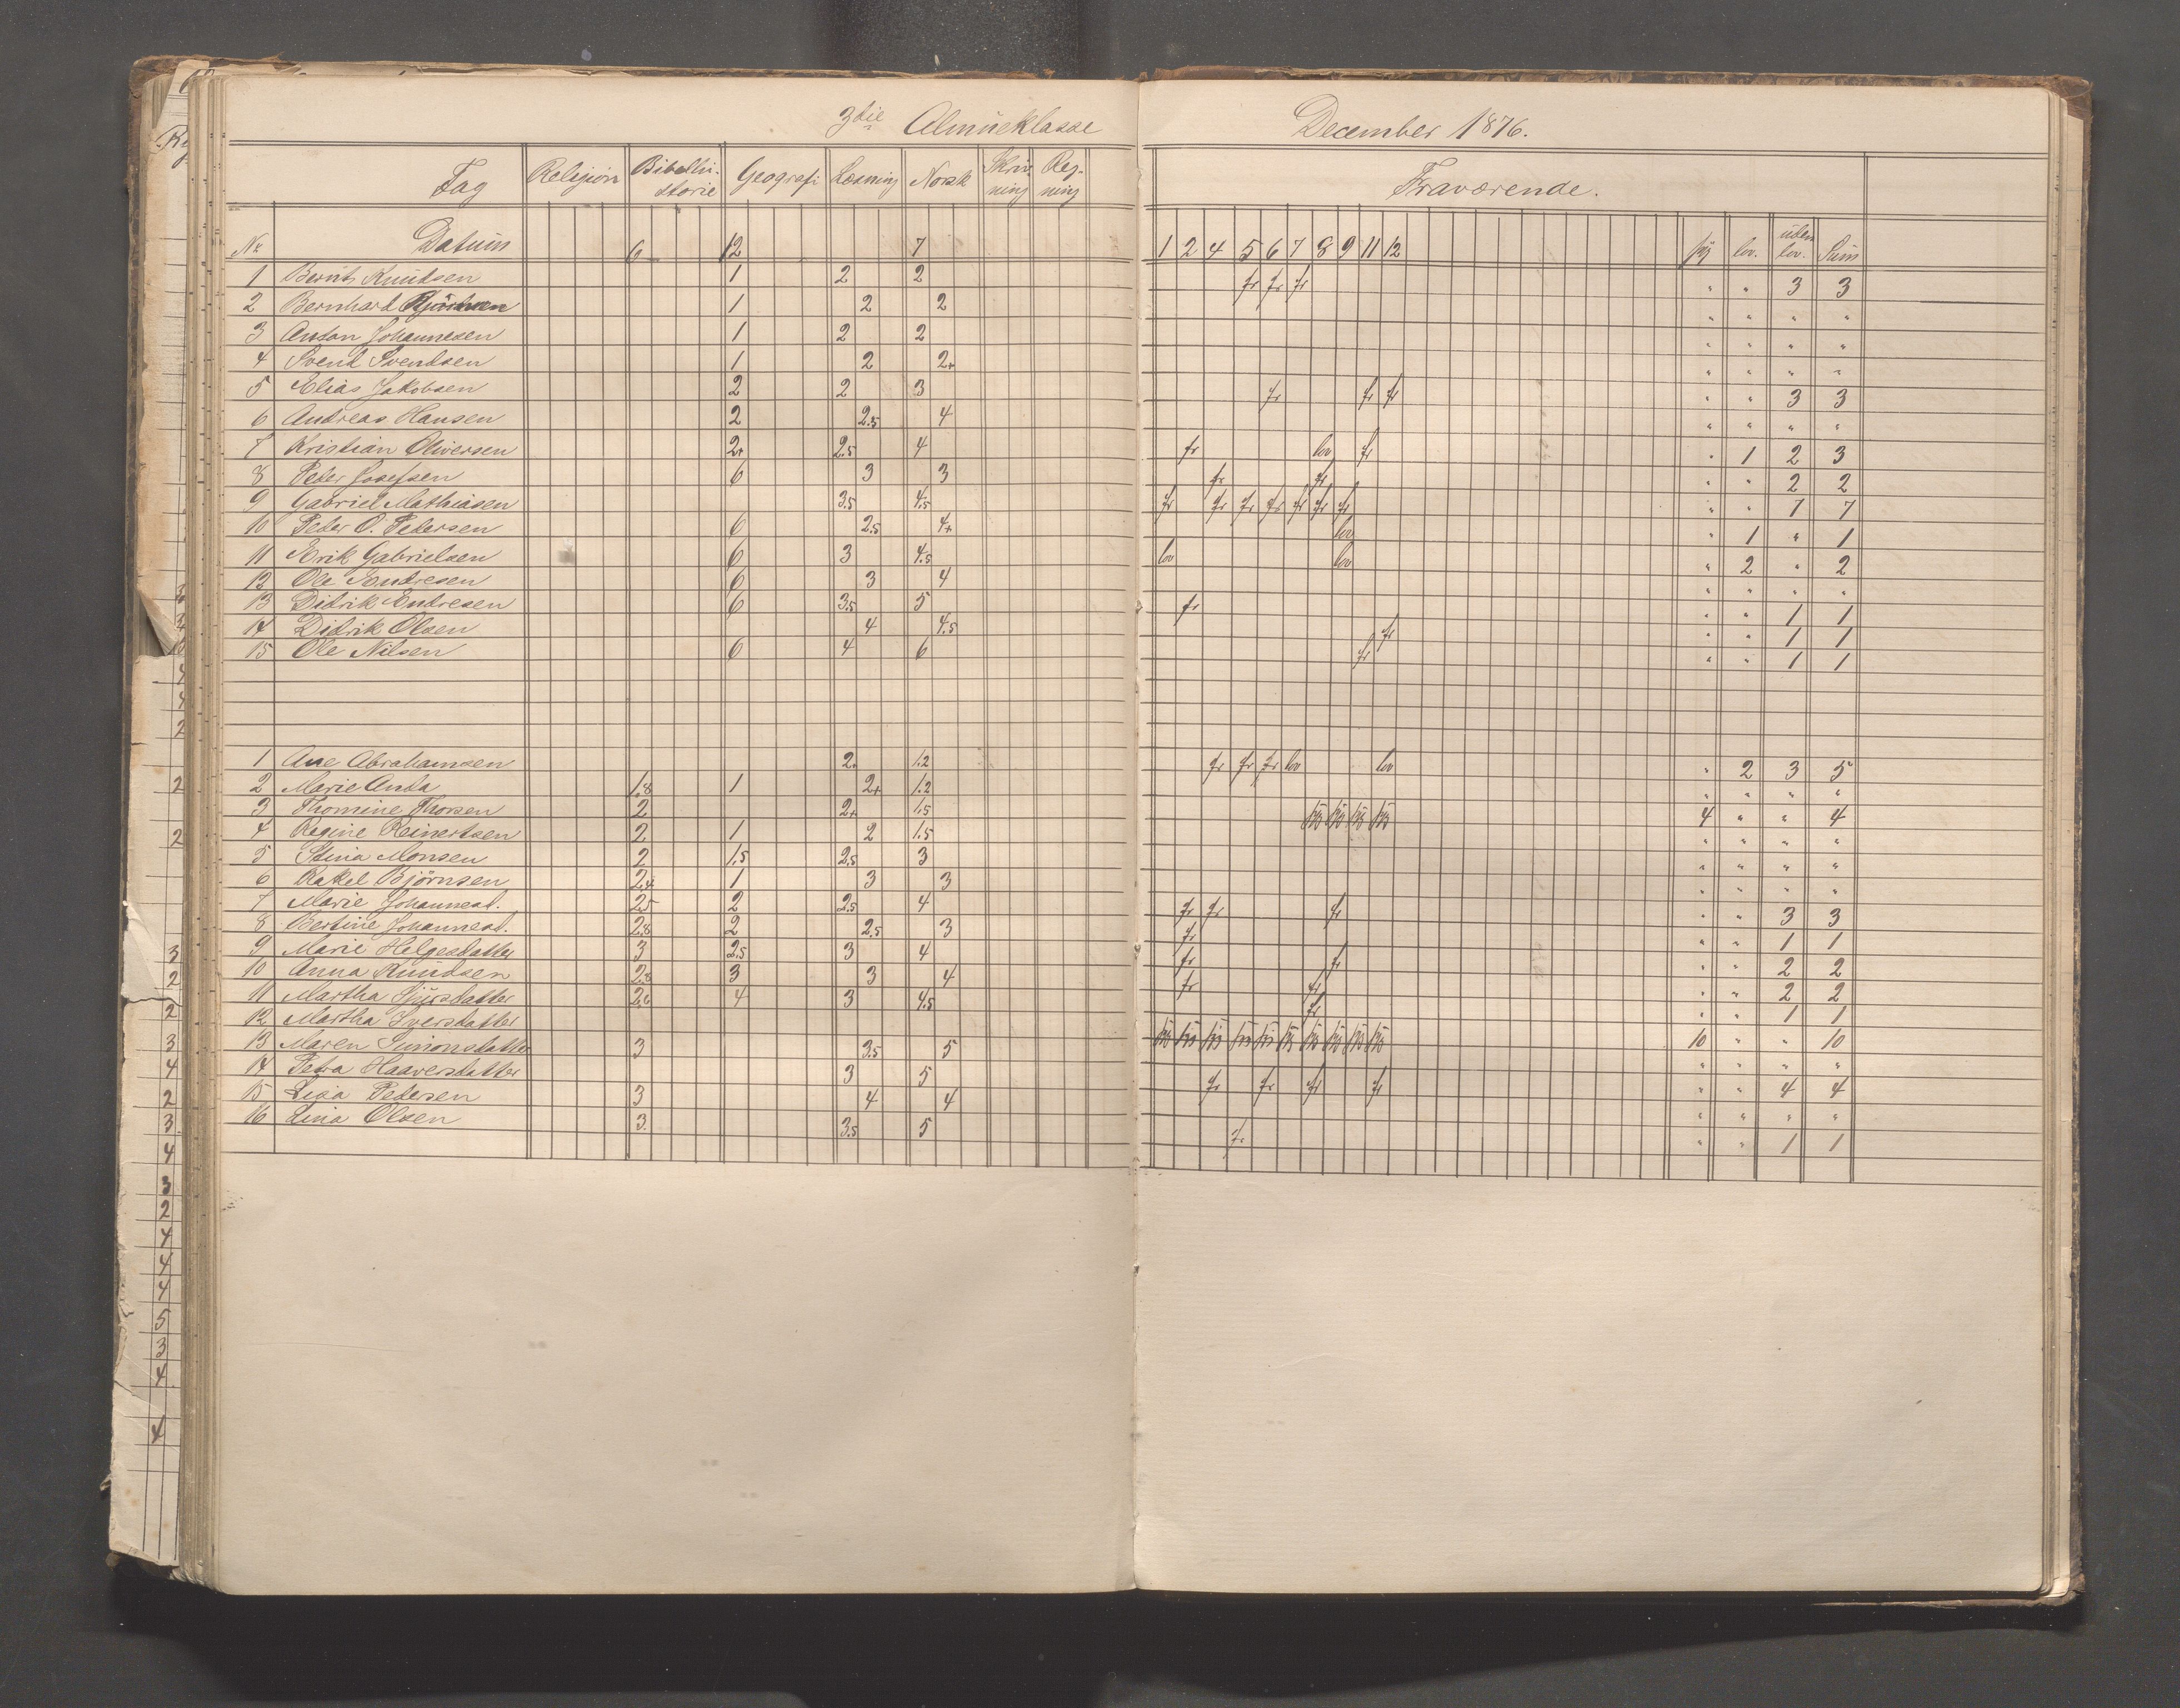 3die Almueklasse December 1876.
Fag Religion Bibelhi-storie Geografi Læsning Norsk Skriv-ning Reg-ning Fraværende.
No Datum 6 12 7 1 2 4 5 6 7 8 9 11 12 syg lov. uden lov. Sum
1 Bernt Knudsen 1 2 2 fr fr fr " " 3 3
2 Bernhard 1 2 2 " " " "
3 Anton Johannesen 1 2 2 " " " "
4 Svend Svendsen 1 2 2+ " " " "
5 Elias Jakobsen 2 2 3 fr fr fr " " 3 3
6 Andreas Hansen 2 2.5 4 " " " "
7 Kristian Oliversen 2+ 2.5 4 fr lov fr " 1 2 3
8 Peder Josefsen 6 3 3 fr fr " " 2 2
9 Gabriel Mathiasen 3.5 4.5 fr fr fr fr fr fr fr " " 7 7
10 Peder O. Pedersen 6 2.5 4+ lov " 1 " 1
11 Erik Gabrielsen 6 3 4.5 lov lov " 2 " 2
12 Ole Endresen 6 3 4 " " " "
13 Didrik Endresen 6 3.5 5 fr " " 1 1
14 Didrik Olsen 4 4.5 fr " " 1 1
15 Ole Nilsen 6 4 6 fr " " 1 1
1 Ane Abrahamsen 2. 1.2 fr fr fr lov lov " 2 3 5
2 Marie Anda 1.8 1 2+ 1.2 " " " "
3 Thomine Thorsen 2 2+ 1.5 syg syg syg syg 4 " " 4
4 Regine Reinertsen 2 1 2 1.5 " " " "
5 Stina Monsen 2 1.5 2.5 3 " " " "
6 Rakel Björnsen 2.4 1 3 3 " " " "
7 Marie Johannesd. 2.5 2 2.5 4 fr fr fr " " 3 3
8 Bertine Johannesd. 2.8 2 2.5 3 fr " " 1 1
9 Marie Helgesdatter 3 2.5 3 4 fr fr " " 2 2
10 Anna Knudsen 2.8 3 3 4 fr fr " " 2 2
11 Martha Sjursdatter 2.6 4 3 4.5 fr " " 1 1
12 Martha Iversdatter syg syg syg syg syg syg syg syg syg syg 10 " " 10
13 Maren Simonsdatter 3 3.5 5 " " " "
14 Petra Haaversdatter 3 5 fr fr fr fr " " 4 4
15 Lisa Pedersen 3 4 4 " " " "
16 Lina Olsen 3. 3.5 5 fr " " 1 1